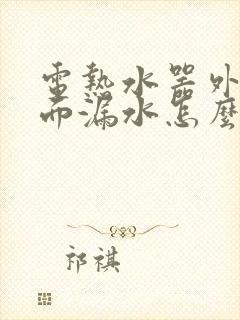 電熱水器外
而漏水怎麼
祁祺